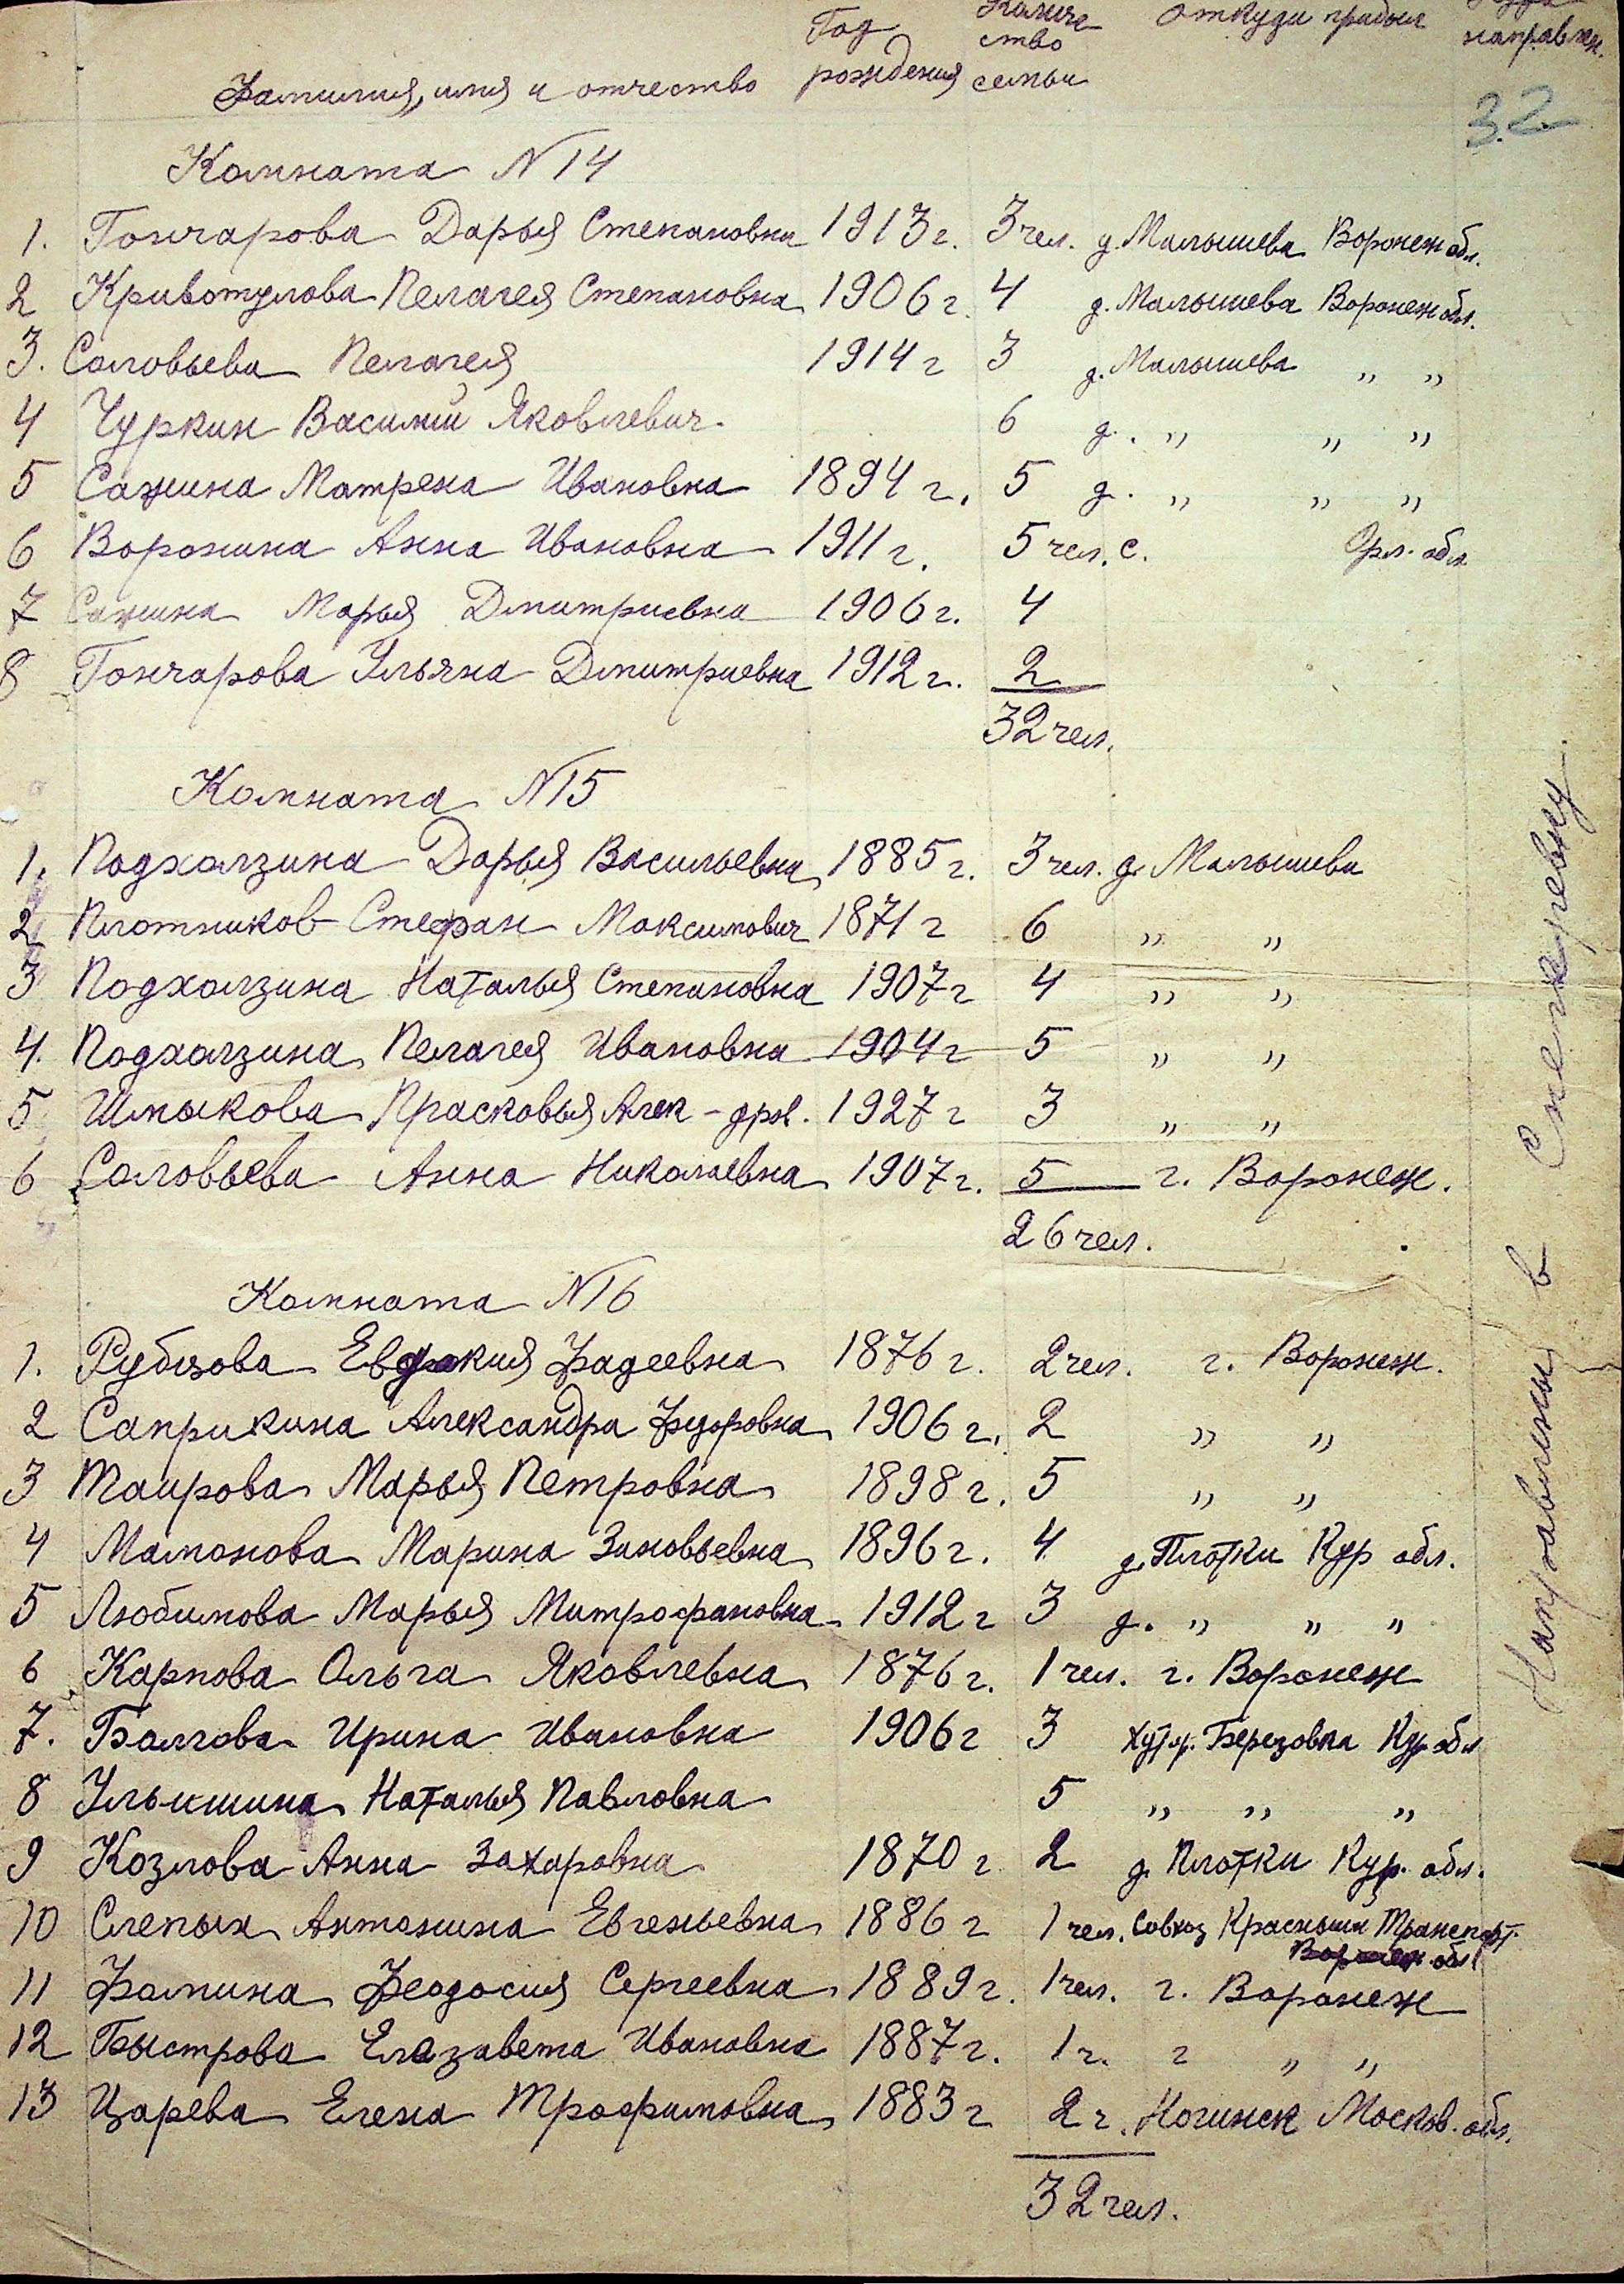 Фамилия, имя и отчество Год рождения Количество семьи Откуда прибыл направлен.
32
Комната N 14
1. Гончарова Дарья Степановна 1913 г. 3 чел. д. Малышева Воронеж обл.
2 Кривотулова Пелагея Степановна 1906 г. 4 д. Малышева Воронеж обл.
3. Соловьева Пелагея 1914 г 3 д. Малышева " "
4 Чуркин Василий Яковлевич. 6 д. " " "
5 Сажина Матрена Ивановна 1894 г. 5 д. " " "
6 Воронина Анна Ивановна 1911 г. 5 чел. с. Орл. обл.
7 Сажина Марья Дмитриевна 1906 г. 4
8 Гончарова Ульяна Дмитриевна 1912 г. 2
32 чел.
Комната N 15
1. Подхалзина Дарья Васильевна 1885 г. 3 чел. д. Малышева
2 Плотников Стефан Максимович 1871 г 6 " "
3 Подхалзина Наталья Степановна 1907 г 4 " "
4. Подхалзина Пелагея Ивановна 1904 г 5 " "
5 Шмыкова Прасковья Алек-дров. 1927 г 3 " "
6 Соловьева Анна Николаевна 1907 г. 5 г. Воронеж.
26 чел.
Комната N 16
1. Рубцова Евдокия Фадеевна 1876 г. 2 чел. г. Воронеж.
2 Саприкина Александра Федоровна 1906 г. 2 " "
3 Таирова Марья Петровна 1898 г. 5 " "
4 Мамонова Марина Зиновьевна 1896 г. 4 д. Плотки Кур обл.
5 Любимова Марья Митрофановна 1912 г 3 д. " " "
6 Карпова Ольга Яковлевна 1876 г. 1 чел. г. Воронеж
7. Балгова Ирина Ивановна 1906 г 3 хутор. Березовка Кур обл
8 Наталья Павловна 5 " " "
9 Козлова Анна Захаровна 1870 г 2 д. Плотки Кур. обл.
10 Слепых Антонина Евгеньевна 1886 г 1 чел. Совхоз Красный Транспорт.
Воронеж обл
11 Фомина Феодосия Сергеевна 1889 г. 1 чел. г. Воронеж
12 Быстрова Елизавета Ивановна 1887 г. 1 ч. г " "
13 Царева Елена Трофимовна 1883 г 2 ч. Ногинск Москов. обл.
32 чел.
Направлены в